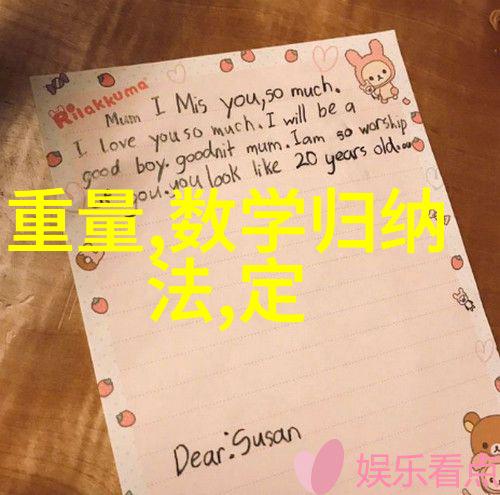 Rilakkuma
Mum I Mis you, so much.
I love you so much. I will be a
good boy. goodnit mum. I am so worship
you. you look like 20 years old.
重量,数学归纳
法,定
Dear: Susan
娱乐看点